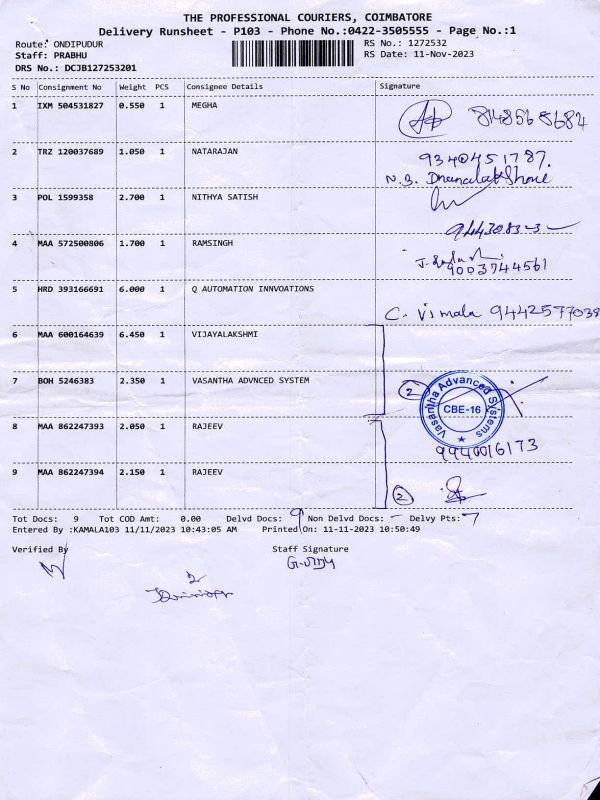 THE PROFESSIONAL COURIERS, COIMBATORE
Delivery Runsheet - P103 - Phone No.:0422-3505555 - Page No.:1
Route: ONDIPUDUR RS No.: 1272532
Staff: PRABHU RS Date: 11-Nov-2023
DRS No.: DCJB127253201
S No Consignment No Weight PCS Consignee Details Signature
1 IXM 504531827 0.550 1 MEGHA 8148565684
2 TRZ 120037689 1.050 1 NATARAJAN 9340451787.
N.B.
3 POL 1599358 2.700 1 NITHYA SATISH
4 MAA 572500806 1.700 1 RAMSINGH
9003744561
5 HRD 393166691 6.000 1 Q AUTOMATION INNVOATIONS
C. Vimala 9442577038
6 MAA 600164639 6.450 1 VIJAYALAKSHMI
7 BOH 5246383 2.350 1 VASANTHA ADVNCED SYSTEM 2
Vasantha Advanced Systems
CBE-16
8 MAA 862247393 2.050 1 RAJEEV
9940016173
9 MAA 862247394 2.150 1 RAJEEV 2
Tot Docs: 9 Tot COD Amt: 0.00 Delvd Docs: 9 Non Delvd Docs: - Delvy Pts: 7
Entered By :KAMALA103 11/11/2023 10:43:05 AM Printed On: 11-11-2023 10:50:49
Verified By Staff Signature